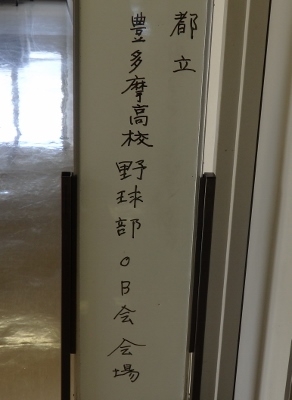 都立
豊多摩高校野球部OB会会場